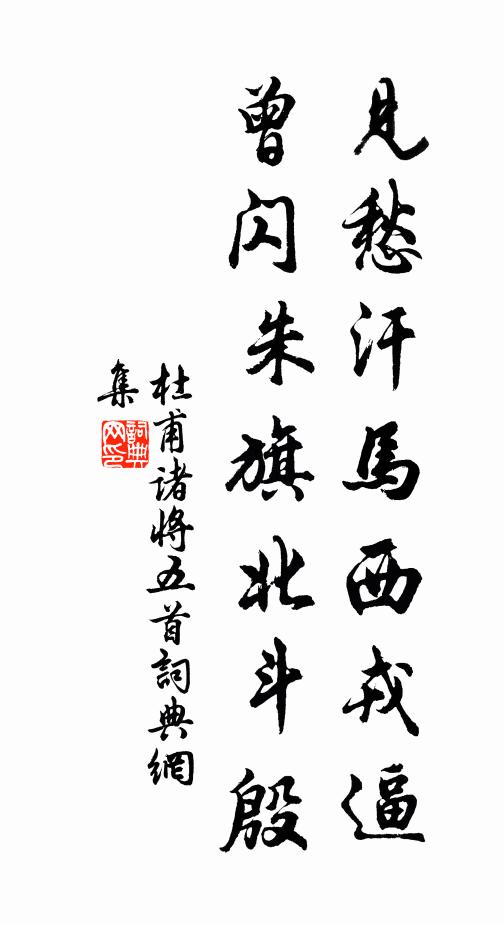 見愁汗馬西戎逼
曾閃朱旗北斗殷
杜甫諸將五首詞典網
集
詞典
网印